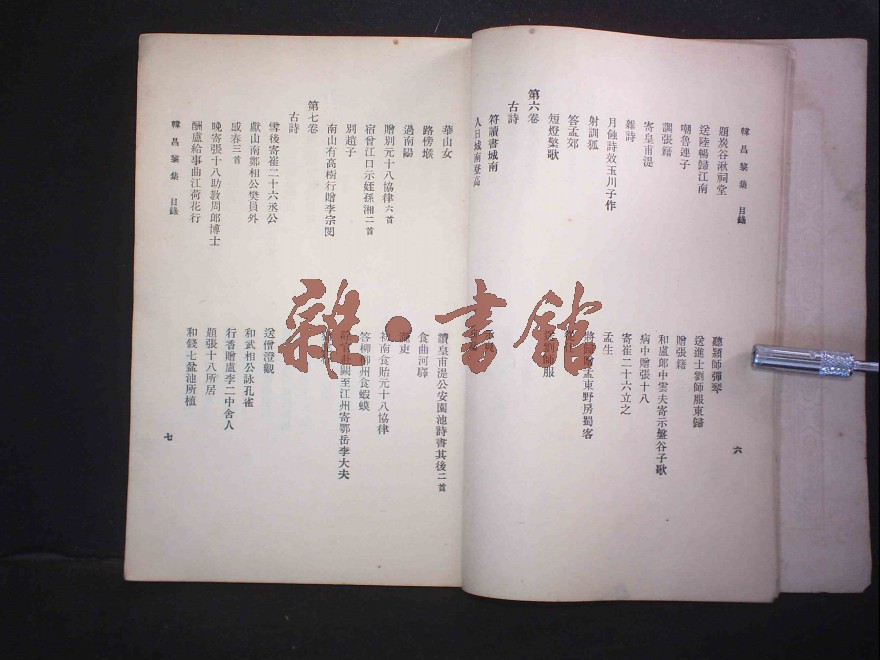 韓昌黎集 目錄
題炭谷湫祠堂
聽穎師彈琴
送陸暢歸江南
送進士劉師服東歸
嘲魯連子
贈張籍
調張籍
和盧郎中雲夫寄示盤谷子歌
寄皇甫湜
病中贈張十八
雜詩
寄崔二十六立之
月蝕詩效玉川子作
孟生
射訓狐
孟東野房蜀客
答孟郊
短燈檠歌
師服
第六卷
古詩
符讀書城南
人日城南登高
六
華山女
讀皇甫湜公安園池詩書其後二首
路傍堠
食曲河驛
過南陽
吏
贈別元十八協律六首
初南食貽元十八協律
宿曾江口示姪孫湘二首
答柳柳州食蝦蟆
別趙子
至江州寄鄂岳李大夫
南山有高樹行贈李宗閔
第七卷
古詩
雪後寄崔二十六丞公
送僧澄觀
獻山南鄭相公樊員外
和武相公詠孔雀
感春三首
行香贈盧李二中舍人
晚寄張十八助教周郎博士
題張十八所居
酬盧給事曲江荷花行
和錢七盆池所植
韓昌黎集 目錄
七
雜·書館